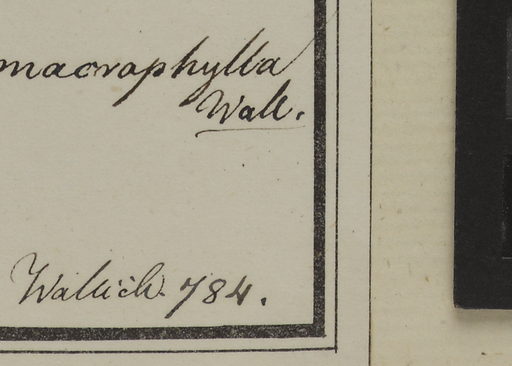 macrophylla
Wall.
Wallich. 784.